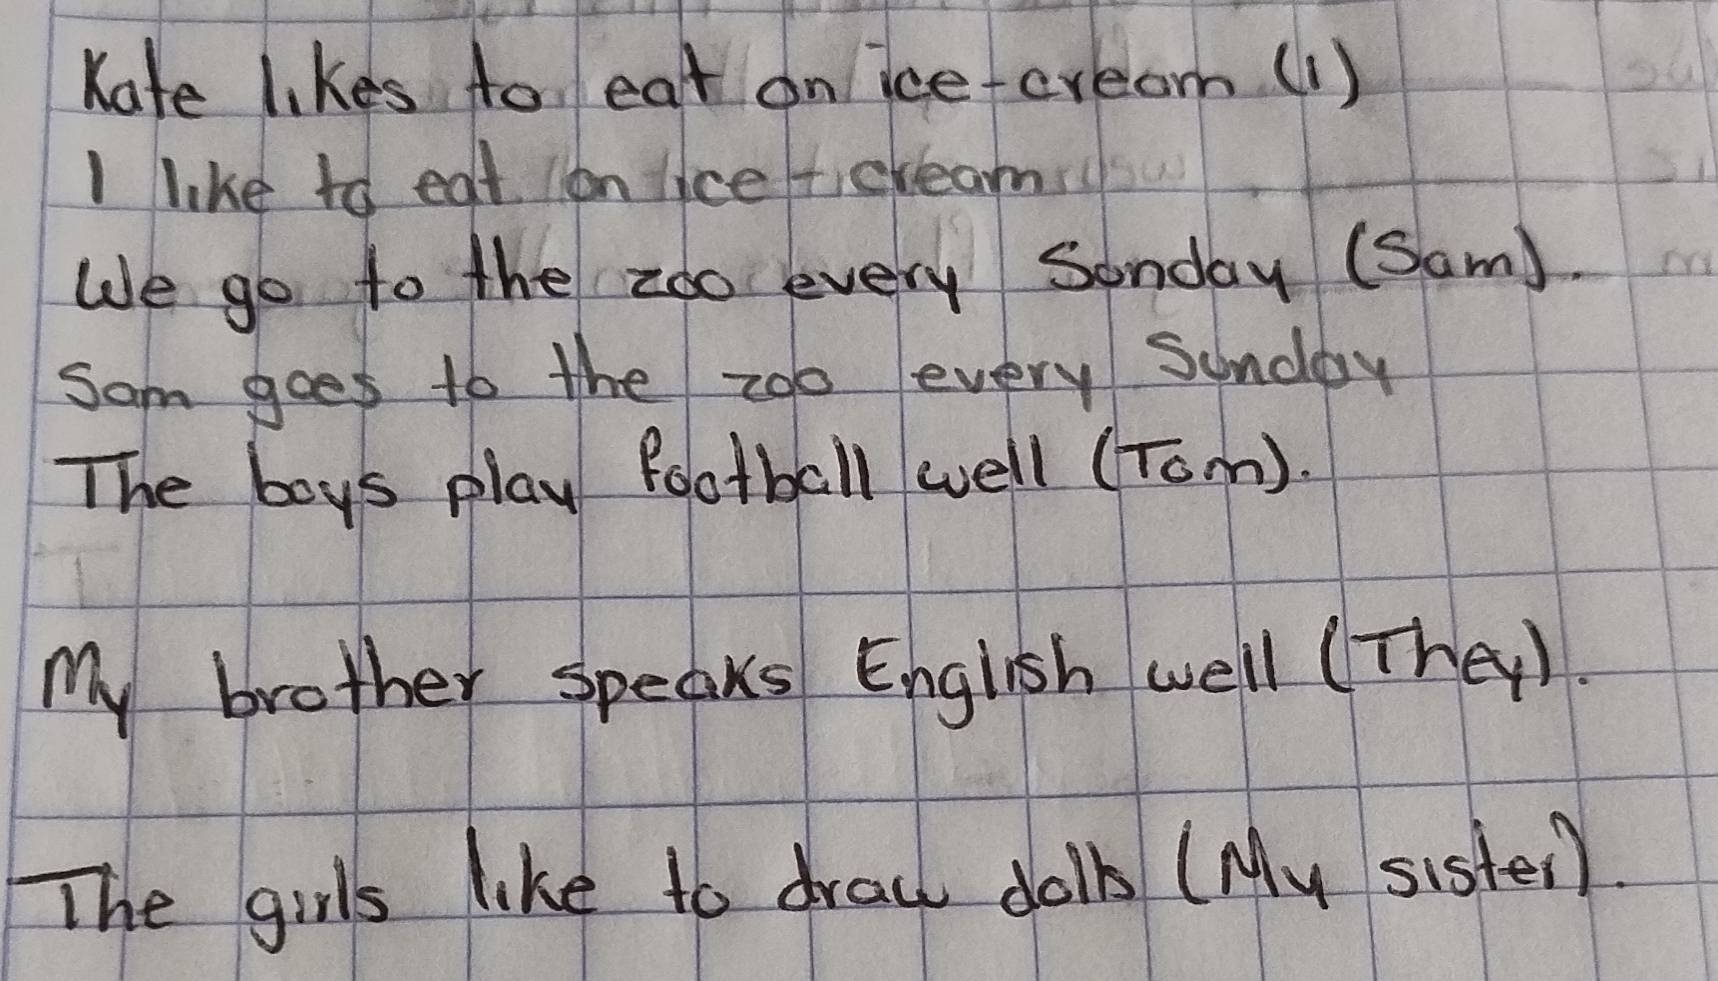 Kate likes to eat an ice-cream (1)
I like to eat an ice-cream
We go to the zoo every Sunday (Sam).
Sam goes to the zoo every Sunday
The boys play football well (Tom).
My brother speaks English well (They).
The girls like to draw dolls (My sister).